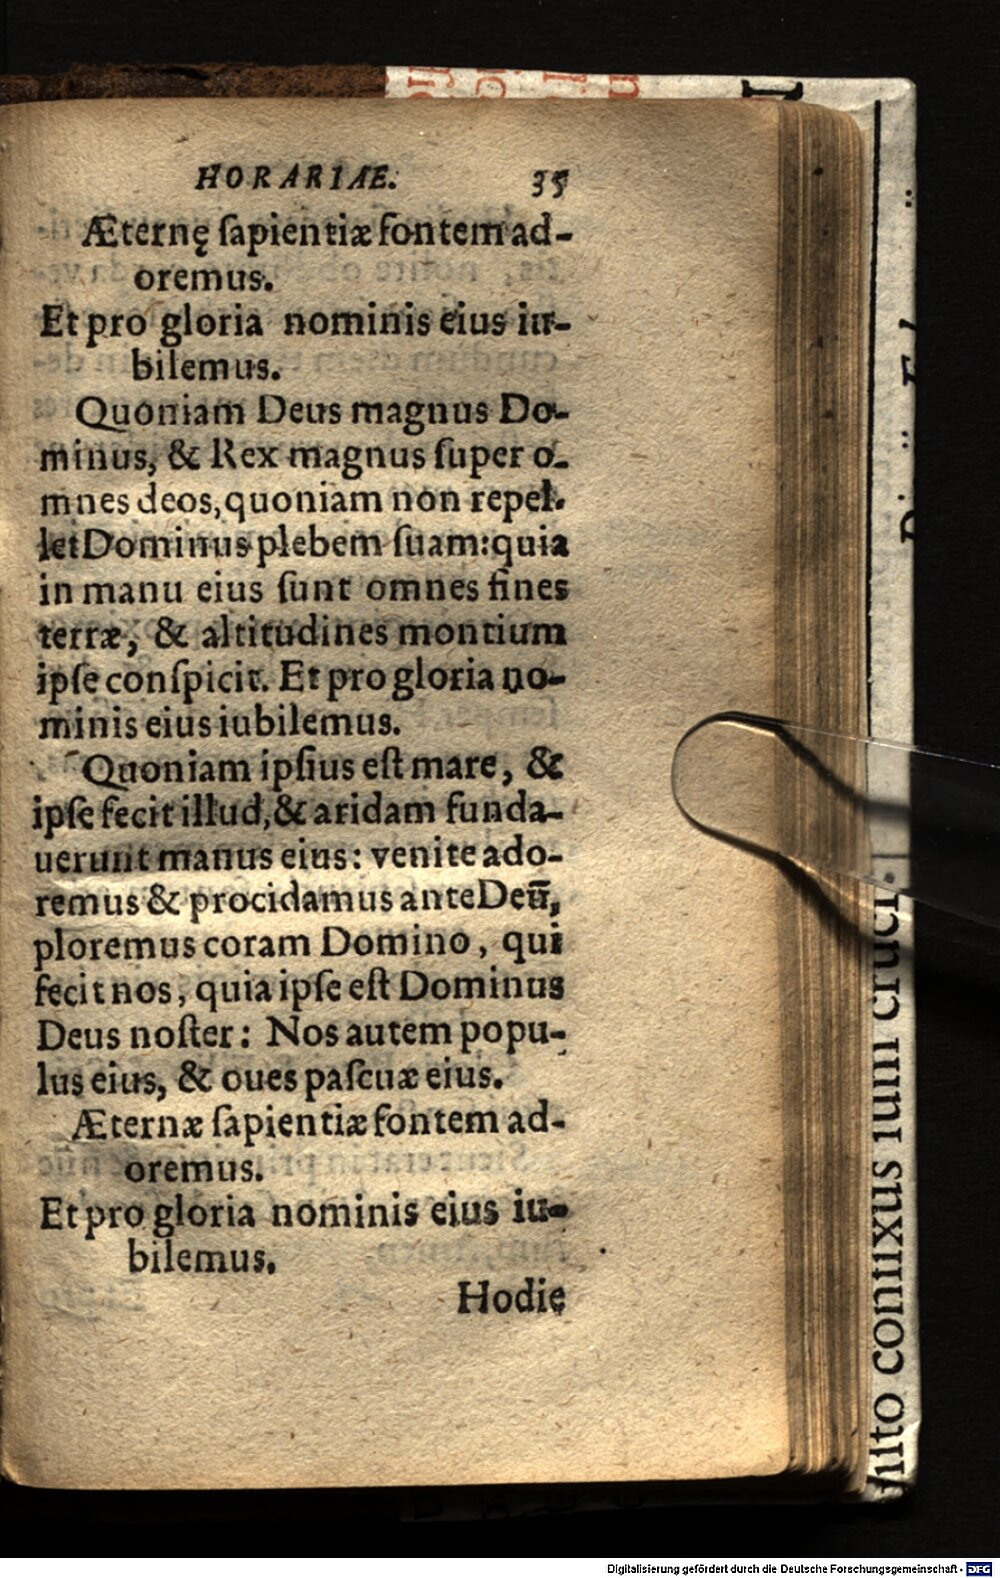 HORARIAE. 35
Æternę ſapientiæ fontem ad-
oremus.
Et pro gloria nominis eius iu-
bilemus.
Quoniam Deus magnus Do-
minus, & Rex magnus ſuper o-
mnes deos, quoniam non repel-
let Dominus plebem ſuam: quia
in manu eius ſunt omnes fines
terræ, & altitudines montium
ipſe conſpicit. Et pro gloria no-
minis eius iubilemus.
Quoniam ipſius eſt mare, &
ipſe fecit illud, & aridam funda-
uerunt manus eius: venite ado-
remus & procidamus ante Deū,
ploremus coram Domino, qui
fecit nos, quia ipſe eſt Dominus
Deus noſter: Nos autem popu-
lus eius, & oues paſcuæ eius.
Æternæ ſapientiæ fontem ad-
oremus.
Et pro gloria nominis eius iu-
bilemus.
Hodie
cruci
conuixus ium
Digitalisierung gefördert durch die Deutsche Forschungsgemeinschaft - DFG